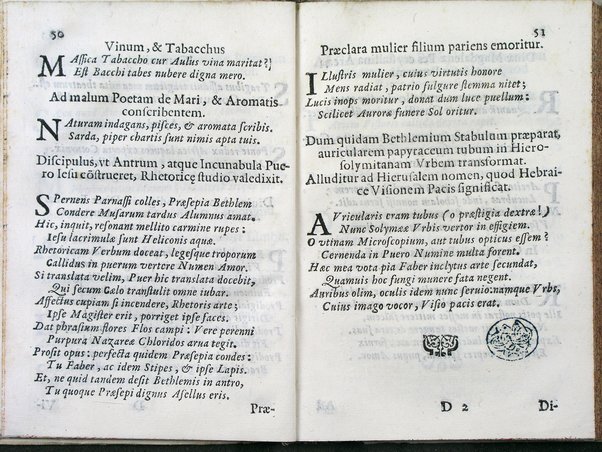 50
Vinum, & Tabacchus
MAssica Tabaccho cur Aulus vina maritat?
Est Bacchi tabes nubere digna mero.
Ad malum Poetam de Mari, & Aromatis
conscribentem.
NAturam indagans, pisces, & aromata scribis.
Sarda, piper chartis sunt nimis apta tuis.
Discipulus, vt Antrum, atque Incunabula Pue-
ro Iesu cõstrueret, Rhetoricę studio valedixit.
SPernens Parnassi colles, Præsepia Bethlem
Condere Musarum tardus Alumnus amat.
Hic, inquit, resonant mellito carmine rupes:
Iesu lacrimulæ sunt Heliconis aquæ.
Rhetoricam Verbum doceat, legesque troporum
Callidus in puerum vertere Numen Amor.
Si translata velim, Puer hic translata docebit,
Qui secum Cælo transtulit omne iubar.
Affectus cupiam si incendere, Rhetoris arte;
Ipse Magister erit, porriget ipse faces.
Dat phrasium flores Flos campi: Vere perenni
Purpura Nazareæ Chloridos arua tegit.
Prosit opus: perfecta quidem Præsepia condes:
Tu Faber, ac idem Stipes, & ipse Lapis.
Et, ne quid tandem desit Bethlemis in antro,
Tu quoque Præsepi dignus Asellus eris.
Præ-
51
Præclara mulier filium pariens emoritur.
ILlustris mulier, cuius virtutis honore
Mens radiat, patrio fulgure stemma nitet;
Lucis inops moritur, donat dum luce puellum:
Scilicet Auroræ funere Sol oritur.
Dum quidam Bethlemium Stabulum præparat,
auricularem papyraceum tubum in Hiero-
solymitanam Vrbem transformat.
Alluditur ad Hierusalem nomen, quod Hebrai-
ce Visionem Pacis significat.
AVricularis eram tubus (o præstigia dextræ!)
Nunc Solymææ Vrbis vertor in effigiem.
O vtinam Microscopium, aut tubus opticus essem?
Cernenda in Puero Numine multa forent.
Hac mea vota pia Faber inclytus arte secundat,
Quamuis hoc fungi munere fata negent.
Auribus olim, oculis idem nunc seruio: namque Vrbs,
Cuius imago vocor, Visio pacis erat.
D 2
Di-